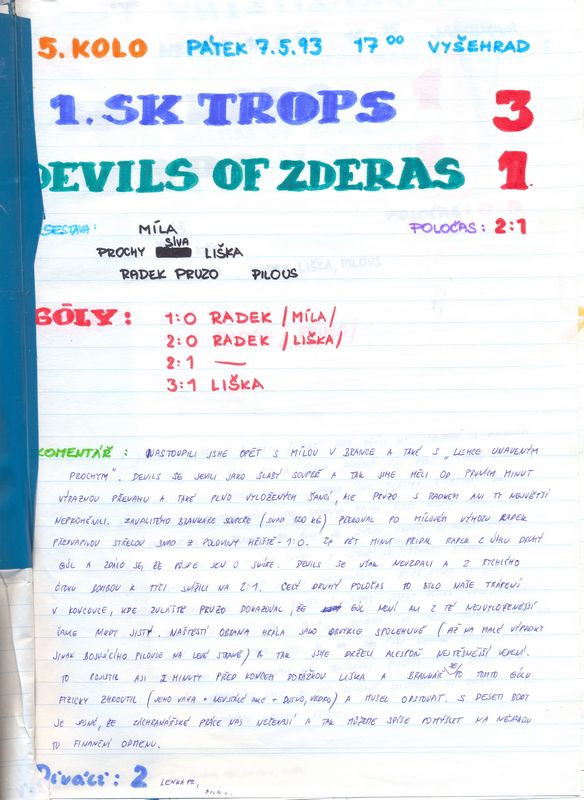 5. KOLO PÁTEK 7.5.93 17 00 VYŠEHRAD
1. SK TROPS 3
DEVILS OF ZDERAS 1
SESTAVA: MÍLA POLOČAS: 2:1
PROCHY SÍVA LIŠKA
RADEK PRUZO PILOUS
GÓLY: 1:0 RADEK /MÍLA/
2:0 RADEK /LIŠKA/
2:1 —
3:1 LIŠKA
KOMENTÁŘ: NASTOUPILI JSME OPĚT S MÍLOU V BRANCE A TAKÉ S „LEHCE UNAVENÝM
PROCHYM". DEVILS SE JEVILI JAKO SLABÝ SOUPEŘ A TAK JSME MĚLI OD PRVNÍCH MINUT
VÝRAZNOU PŘEVAHU A TAKÉ PLNO VYLOŽENÝCH ŠANCÍ, ALE PRUZO S RADKEM ANI TY NEJVĚTŠÍ
NEPROMĚNILI. ZAVALITÉHO BRANKÁŘE SOUPEŘE (SNAD 120 KG) PŘEKONAL PO MÍLOVĚM VÝHOZU RADEK
PŘEKVAPIVOU STŘELOU SNAD Z POLOVINY HŘIŠTĚ - 1:0. ZA PĚT MINUT PŘIDAL RADEK Z ÚHLU DRUHÝ
GÓL A ZDÁLO SE ŽE PŮJDE JEN O SKÓRE. DEVILS SE VŠAK NEVZDALI A Z RYCHLÉHO
ÚTOKU BOMBOU K TYČI SNÍŽILI NA 2:1. CELÝ DRUHÝ POLOČAS TO BYLO NAŠE TRÁPENÍ
V KONCOVCE, KDE ZVLÁŠTĚ PRUZO DOKAZOVAL, ŽE GÓL NENÍ ANI Z TÉ NEJVYLOŽENĚJŠÍ
ŠANCE NIKDY JISTÝ. NAŠTĚSTÍ OBRANA HRÁLA JAKO OBVYKLE SPOLEHLIVĚ (AŽ NA MALÉ VÝPADKY
JINAK BOJUJÍCÍHO PILOUSE NA LEVÉ STRANĚ) A TAK JSME DRŽELI ALESPOŇ NEJTĚSNĚJŠÍ VEDENÍ.
TO POJISTIL ASI 2 MINUTY PŘED KONCEM DORÁŽKOU LIŠKA A BRANKÁŘ SE PO TOMTO GÓLU
FYZICKY ZHROUTIL (JEHO VÁHA + NEUSTÁLÉ AKCE + DUSNO, VEDRO) A MUSEL ODSTOUPIT. S DESETI BODY
JE JASNÉ, ŽE ZÁCHRANÁŘSKÉ PRÁCE NÁS NEČEKAJÍ A TAK MŮŽEME SPÍŠE POMÝŠLET NA NĚJAKOU
TU FINANČNÍ ODMĚNU.
Diváci: 2 LENKA PR.,